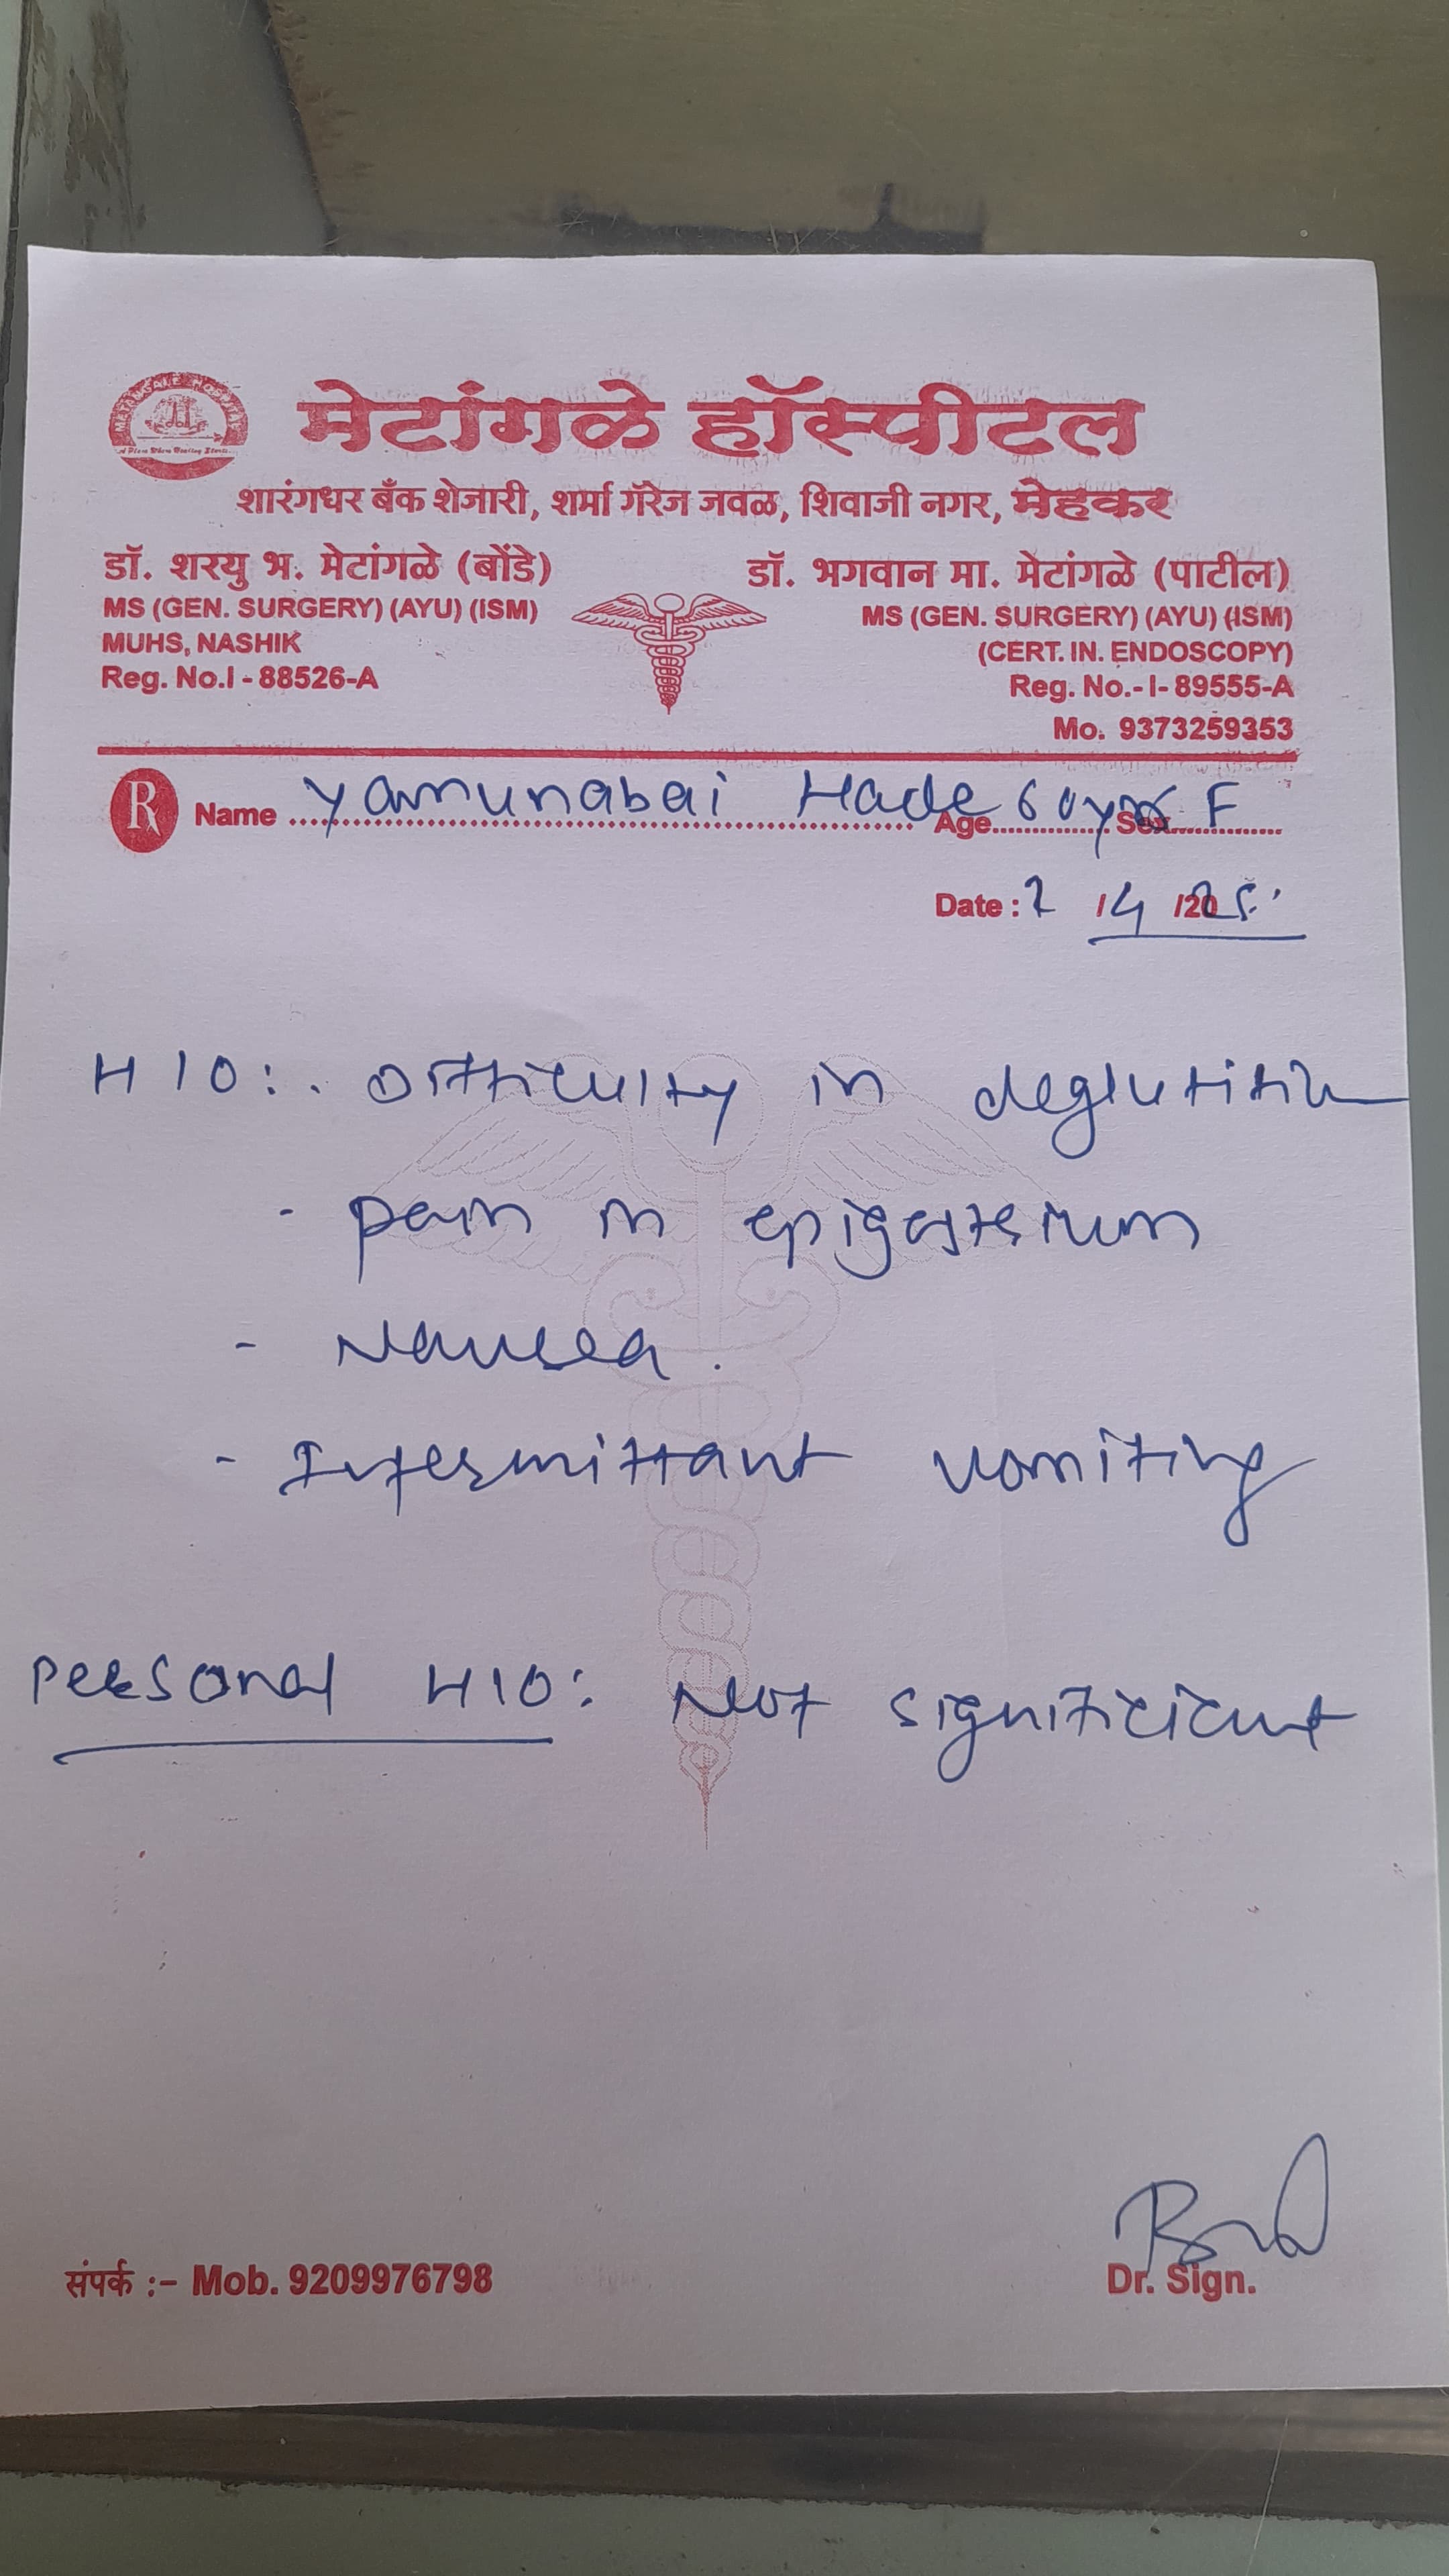 METANGALE HOSPITAL
A Place Where Healing Starts..
मेटांगळे हॉस्पीटल
शारंगधर बँक शेजारी, शर्मा गॅरेज जवळ, शिवाजी नगर, मेहकर
डॉ. शरयु भ. मेटांगळे (बोंडे)
MS (GEN. SURGERY) (AYU) (ISM)
MUHS, NASHIK
Reg. No.I - 88526-A
डॉ. भगवान मा. मेटांगळे (पाटील)
MS (GEN. SURGERY) (AYU) (ISM)
(CERT. IN. ENDOSCOPY)
Reg. No.- I- 89555-A
Mo. 9373259353
R Name Yamunabai Hade Age 60yrs Sex F
Date : 2 /4 /2025
H/O : . Difficulty in deglutition
- pain in epigasterium
- Nausea .
- Intermittant vomiting
Personal H/O : Not significient
संपर्क :- Mob. 9209976798
Dr. Sign.